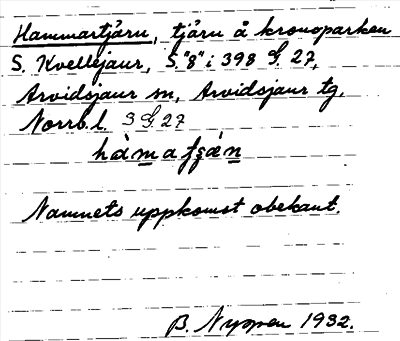 Hammartjärn, tjärn å kronoparken
S. Kvellejaur, S."8" i 398 G. 27,
Arvidsjaur sn, Arvidsjaur tg,
Norrb. l. 3 G. 27
Namnets uppkomst obekant.
B. Nyman 1932.